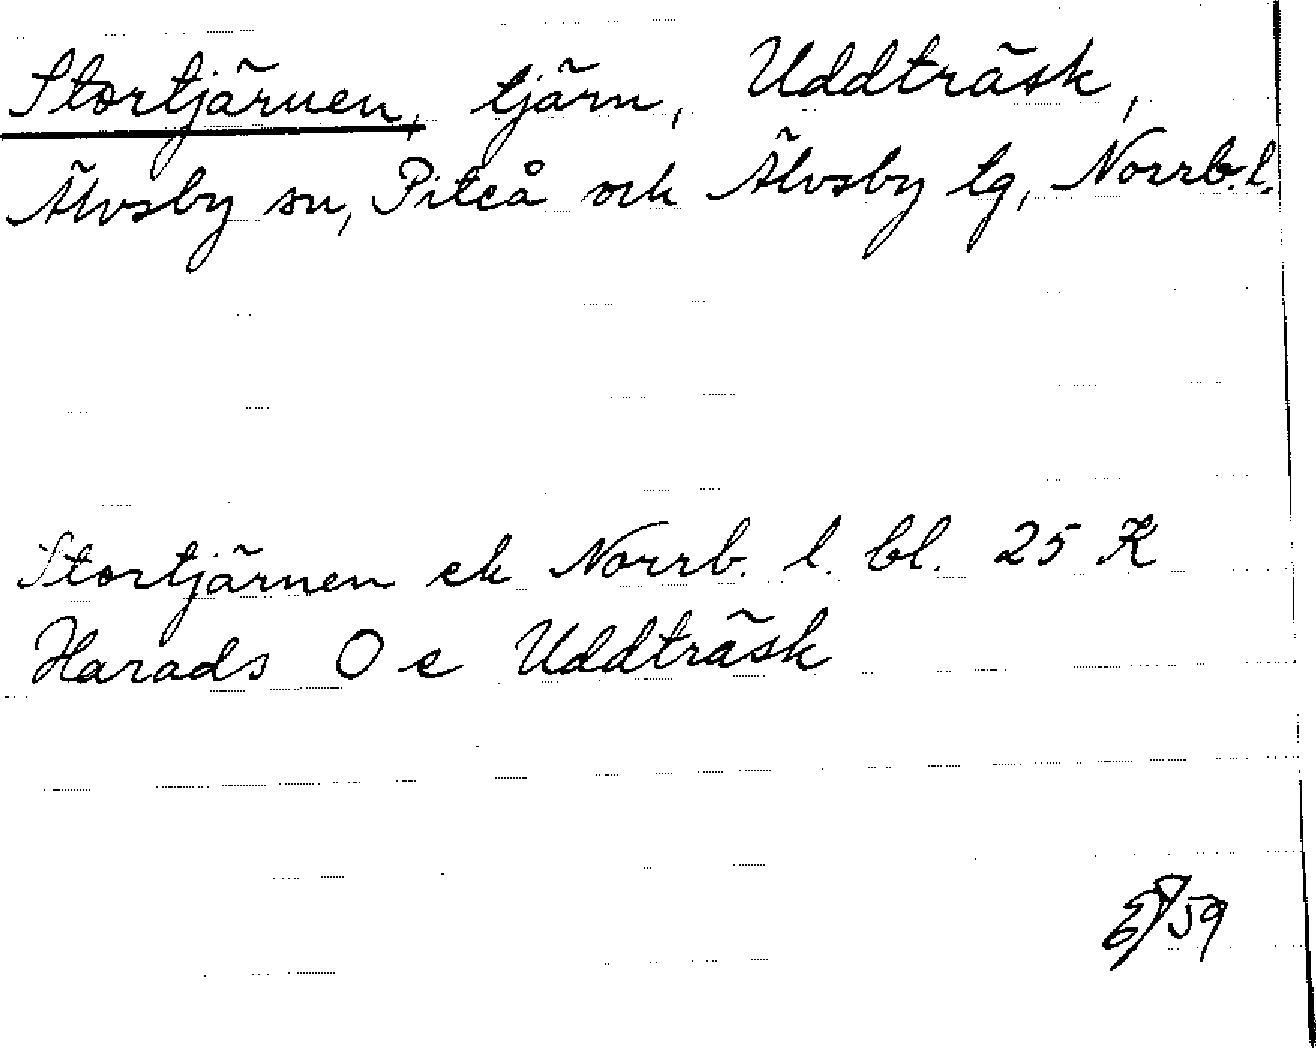 Stortjärnen, tjärn, Uddträsk,
Älvsby sn, Piteå och Älvsby tg, Norrb. l.
Stortjärnen ek Norrb. l. bl. 25 K
Harads O e Uddträsk
59